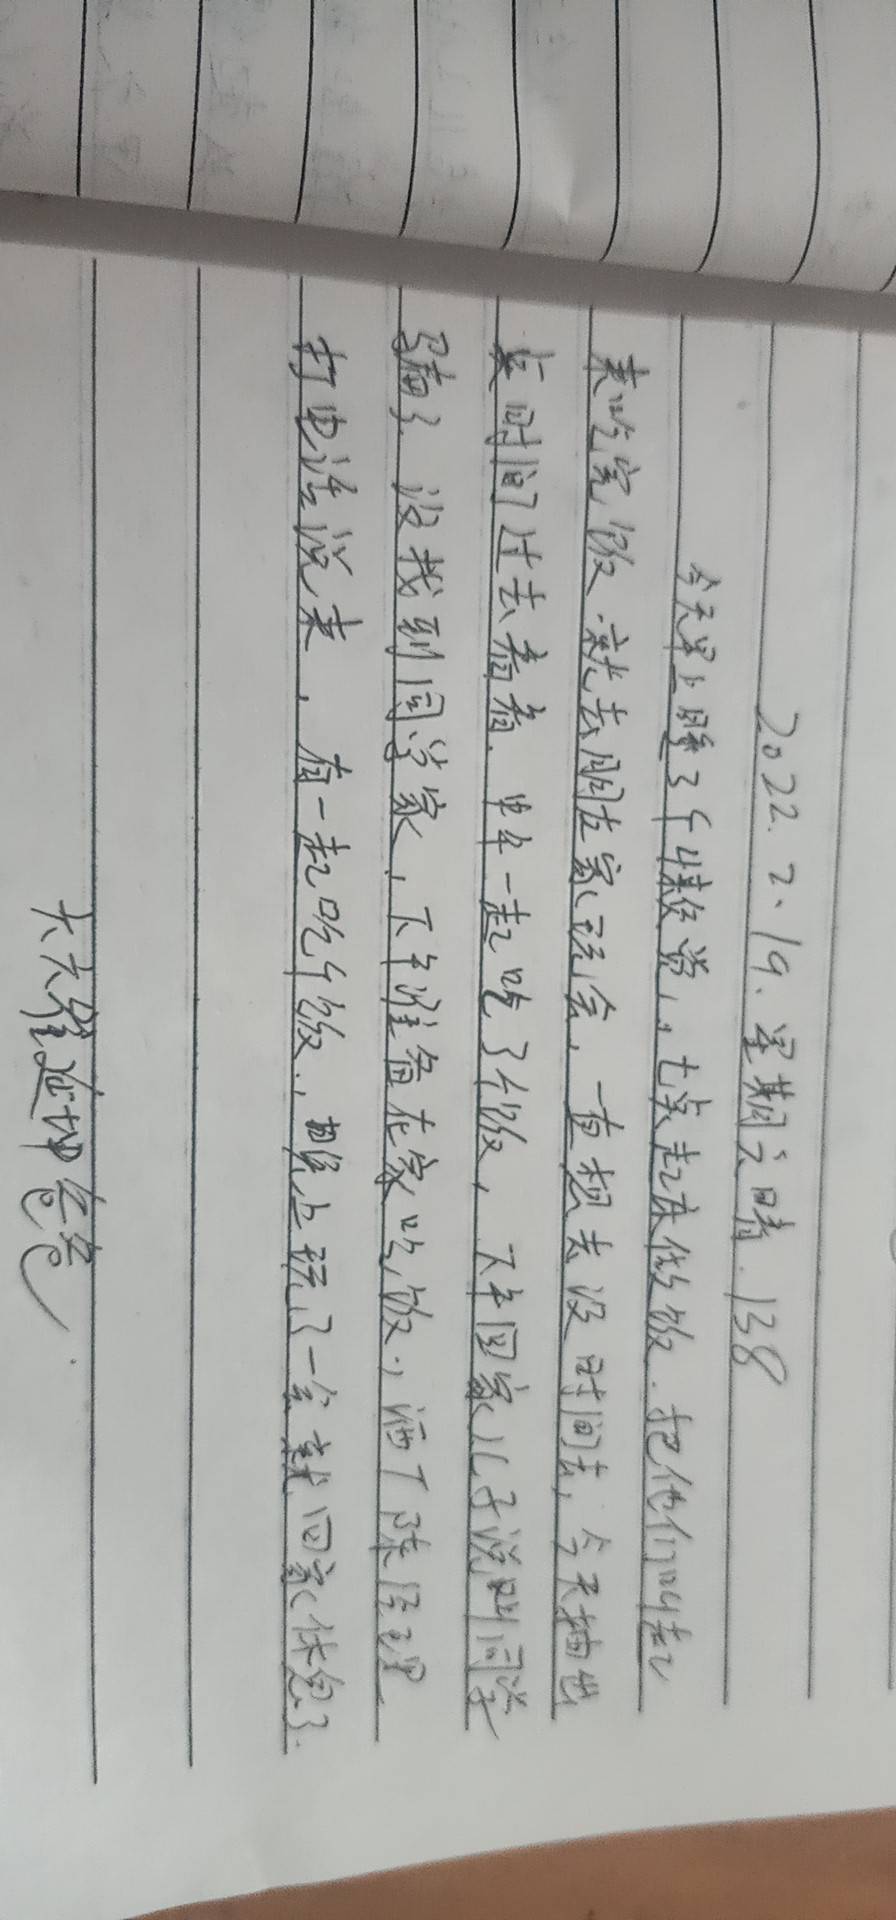 2022.2.19.星期六 晴.138
今天早上睡了个懒觉,七点起床做饭.把他们叫起
来吃完饭.就去朋友家玩会,一直想去没时间去,今天抽出
点时间过去看看.中午一起吃了个饭,下午回家儿子说叫同学
骗了.没找到同学家,下午准备在家吃饭.,酒厂陈经理
打电话说来,有一起吃个饭.,晚上玩了一会就回家休息了.
大六 延坤爸爸.